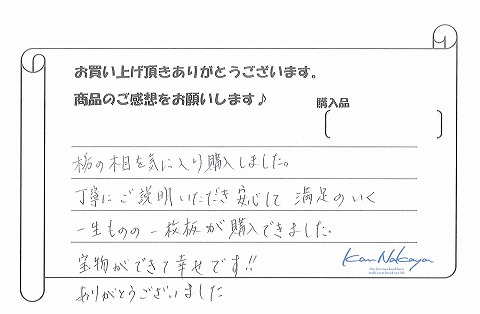 お買い上げ頂きありがとうございます。
商品のご感想をお願いします♪
購入品
栃の木目を気に入り購入しました。
丁寧にご説明いただき安心して満足のいく
一生ものの一枚板が購入できました。
宝物ができて幸せです!!
ありがとうございました